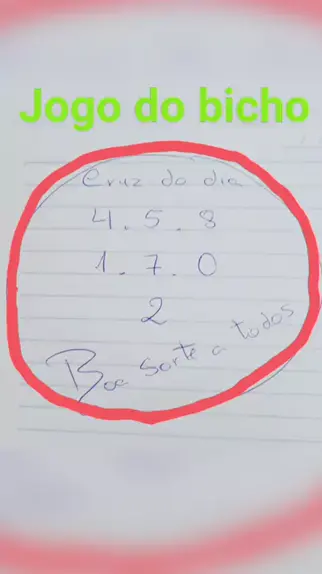 Jogo do bicho
Cruz do dia
4. 5. 8
1. 7. 0
2
Boa sorte a todos